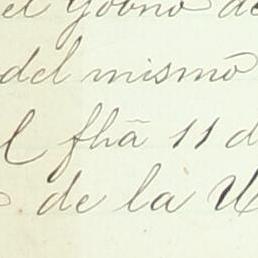 el Gobno de
del mismo
fhã 11 d
de la